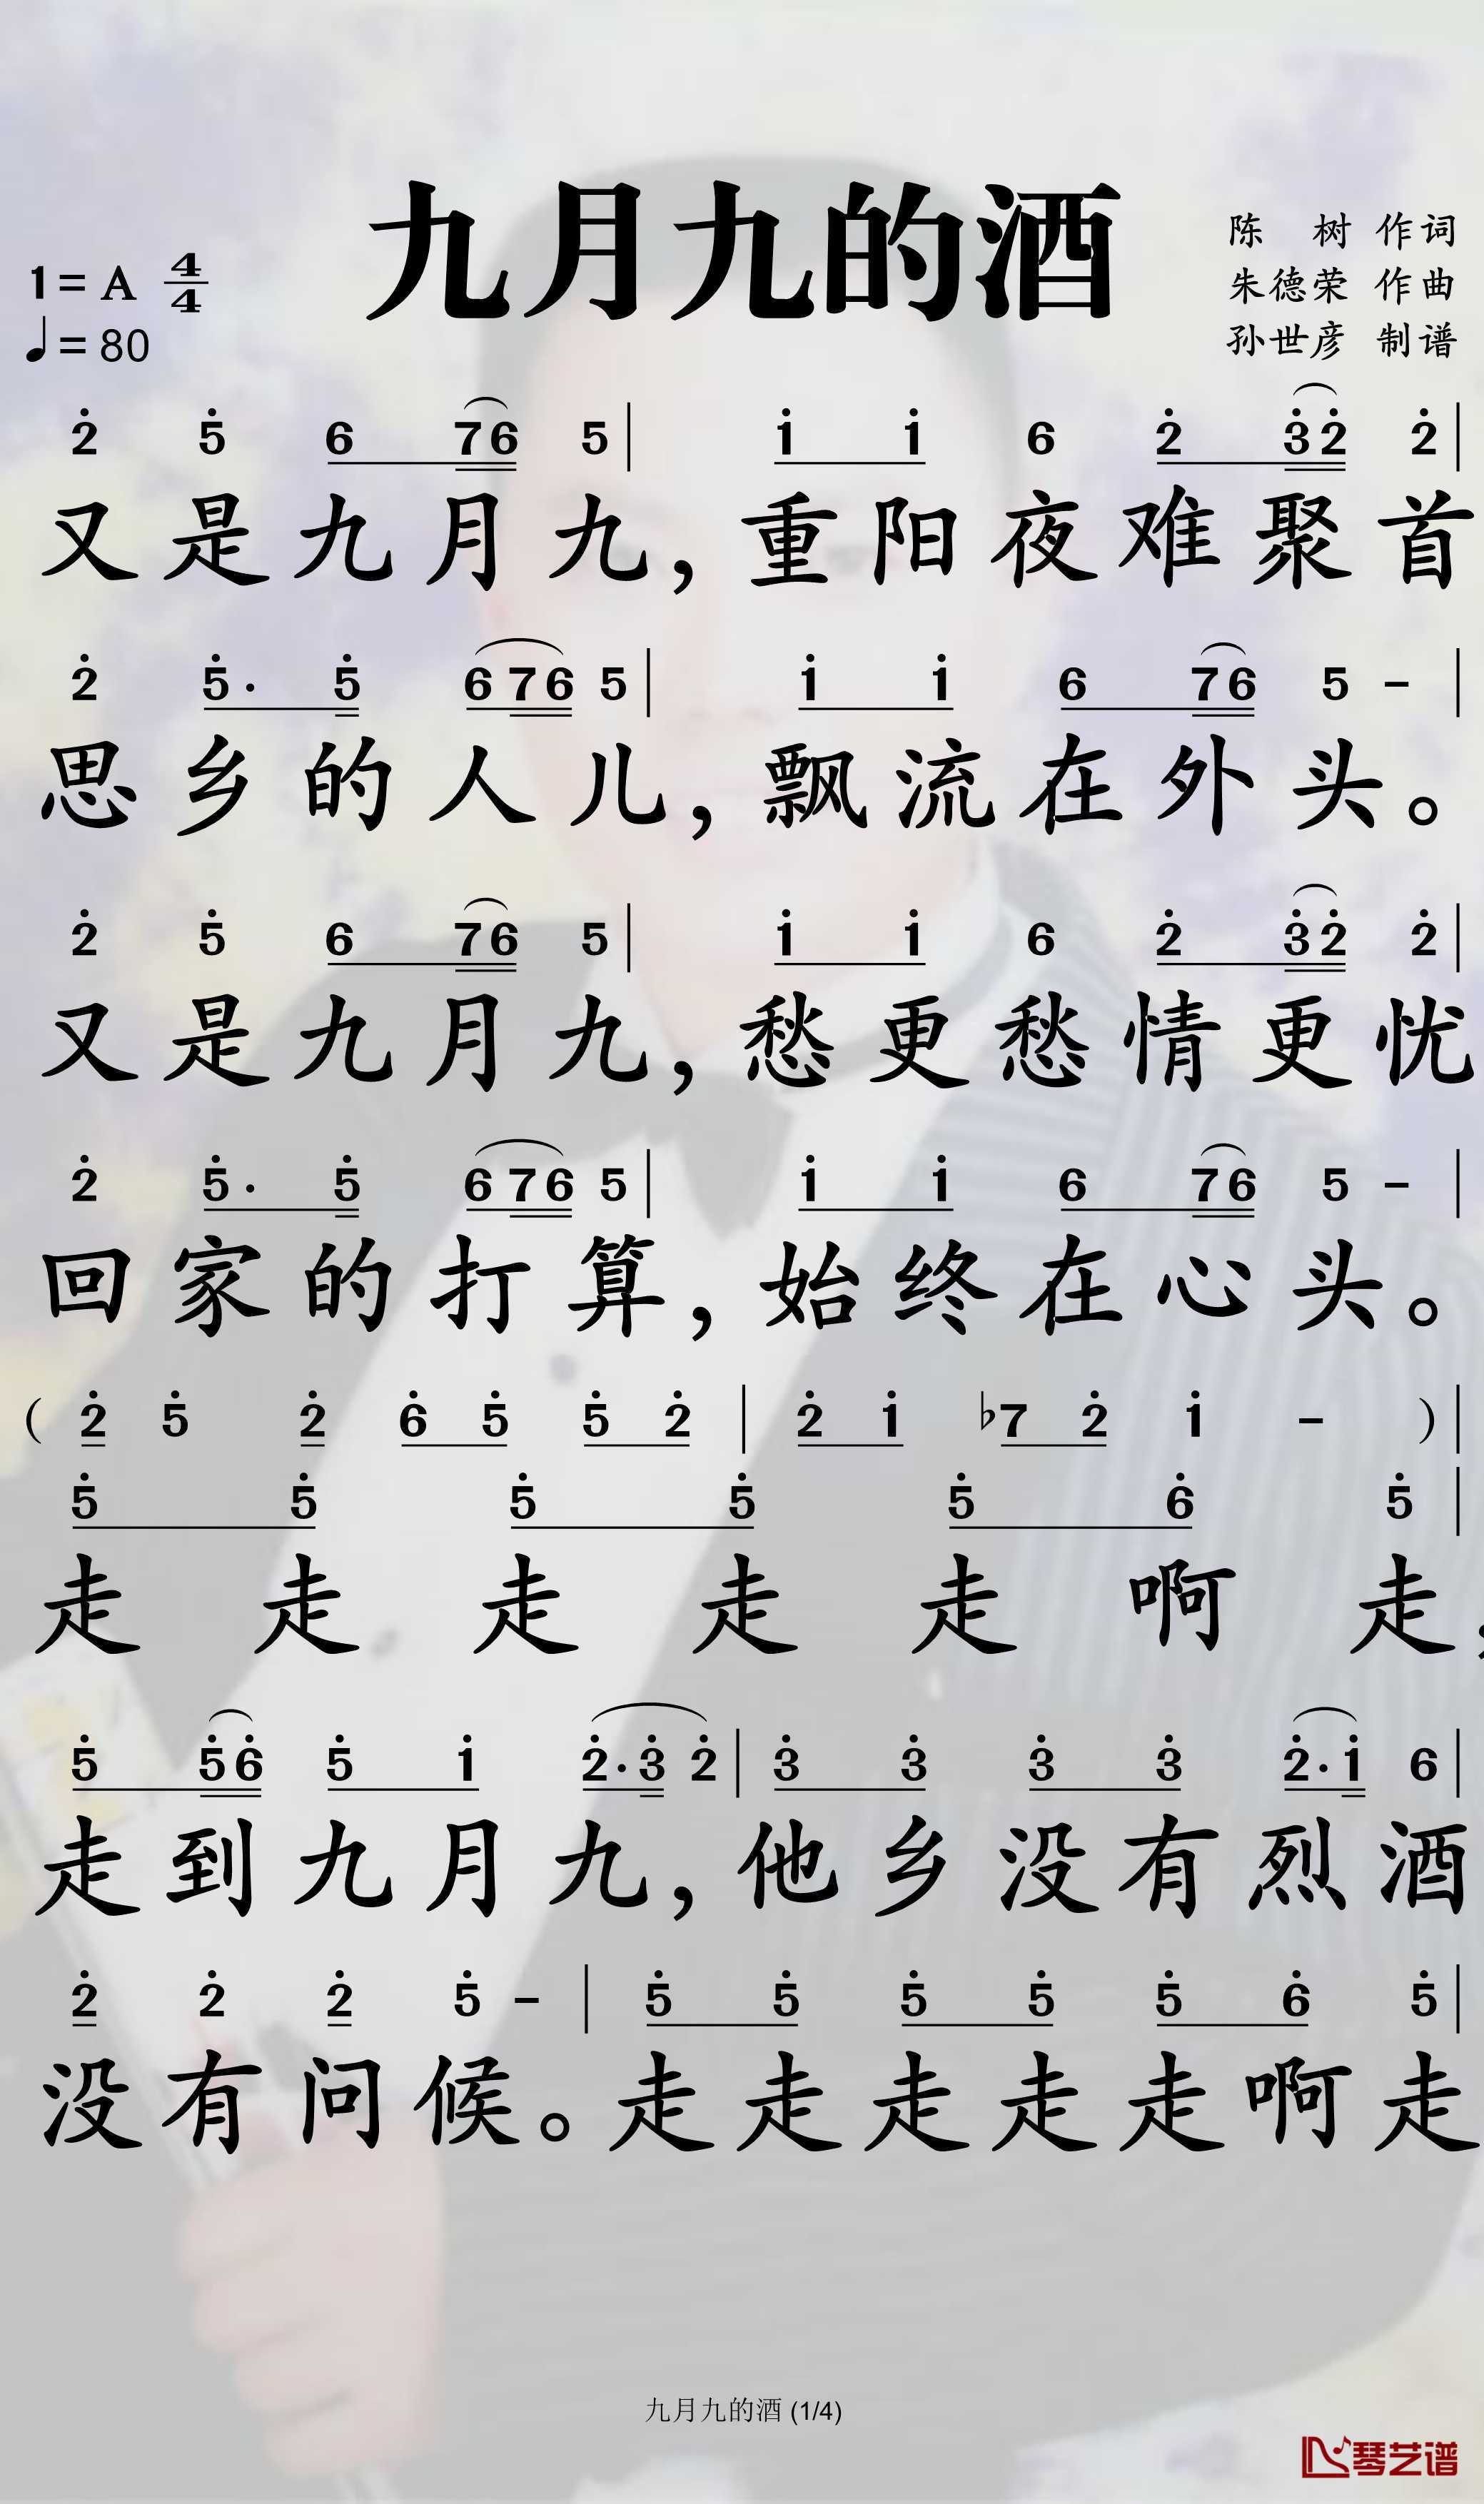 九月九的酒
陈 树 作词
朱德荣 作曲
孙世彦 制谱
1= A 4/4
♩= 80
2̇ 5̇ 6 76 5 | 1̇ 1̇ 6 2̇ 3̇2̇ 2̇ |
又是九月九，重阳夜难聚首
2̇ 5̇· 5̇ 676 5 | 1̇ 1̇ 6 76 5 - |
思乡的人儿，飘流在外头。
2̇ 5̇ 6 76 5 | 1̇ 1̇ 6 2̇ 3̇2̇ 2̇ |
又是九月九，愁更愁情更忧
2̇ 5̇· 5̇ 676 5 | 1̇ 1̇ 6 76 5 - |
回家的打算，始终在心头。
( 2̇ 5̇ 2̇ 6̇ 5̇ 5̇ 2̇ | 2̇ 1̇ ♭7 2̇ 1̇ - ) |
5̇ 5̇ 5̇ 5̇ 5̇ 6̇ 5̇ |
走走走走走啊走，
5̇ 5̇6̇ 5̇ 1̇ 2̇·3̇ 2̇ | 3̇ 3̇ 3̇ 3̇ 2̇·1̇ 6 |
走到九月九，他乡没有烈酒
2̇ 2̇ 2̇ 5̇ - | 5̇ 5̇ 5̇ 5̇ 5̇ 6̇ 5̇ |
没有问候。走走走走走啊走
九月九的酒 (1/4)
琴艺谱